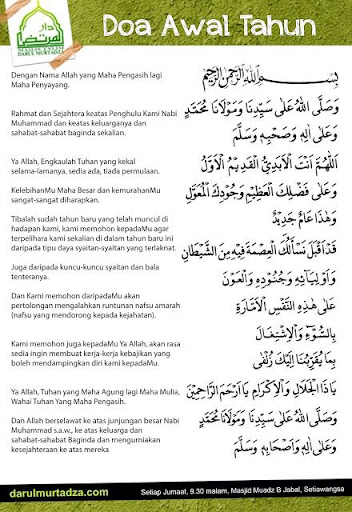 دار المرتضى
MAJLIS TA'LIM
DARUL MURTADZA
Doa Awal Tahun
Dengan Nama Allah yang Maha Pengasih lagi
Maha Penyayang.
Rahmat dan Sejahtera keatas Penghulu Kami Nabi
Muhammad dan keatas keluarganya dan
sahabat-sahabat baginda sekalian.
Ya Allah, Engkaulah Tuhan yang kekal
selama-lamanya, sedia ada, tiada permulaan.
KelebihanMu Maha Besar dan kemurahanMu
sangat-sangat diharapkan.
Tibalah sudah tahun baru yang telah muncul di
hadapan kami, kami memohon kepadaMu agar
terpelihara kami sekalian di dalam tahun baru ini
daripada tipu daya syaitan-syaitan yang terlaknat.
Juga daripada kuncu-kuncu syaitan dan bala
tenteranya.
Dan Kami memohon daripadaMu akan
pertolongan mengalahkan runtunan nafsu amarah
(nafsu yang mendorong kepada kejahatan).
Kami memohon juga kepadaMu Ya Allah, akan rasa
sedia ingin membuat kerja-kerja kebajikan yang
boleh mendampingkan diri kami kepadaMu.
Ya Allah, Tuhan yang Maha Agung lagi Maha Mulia,
Wahai Tuhan Yang Maha Pengasih.
Dan Allah berselawat ke atas junjungan besar Nabi
Muhammad s.a.w., ke atas keluarga dan
sahabat-sahabat Baginda dan mengurniakan
kesejahteraan ke atas mereka
بِسْمِ اللهِ الرَّحْمٰنِ الرَّحِيْمِ
وَصَلَّى اللهُ عَلَى سَيِّدِنَا وَمَوْلَانَا مُحَمَّدٍ
وَعَلَى آلِهِ وَصَحْبِهِ وَسَلَّمَ
اَللّٰهُمَّ اَنْتَ الْاَبَدِيُّ الْقَدِيْمُ الْاَوَّلُ
وَعَلَى فَضْلِكَ الْعَظِيْمِ وَجُوْدِكَ الْمُعَوَّلِ
وَهٰذَا عَامٌ جَدِيْدٌ
قَدْ اَقْبَلَ نَسْأَلُكَ الْعِصْمَةَ فِيْهِ مِنَ الشَّيْطَانِ
وَاَوْلِيَآئِهِ وَجُنُوْدِهِ وَالْعَوْنَ
عَلَى هٰذِهِ النَّفْسِ الْاَمَّارَةِ
بِالسُّوْءِ وَالْاِشْتِغَالَ
بِمَا يُقَرِّبُنَا اِلَيْكَ زُلْفَى
يَاذَا الْجَلَالِ وَالْاِكْرَامِ يَا اَرْحَمَ الرَّاحِمِيْنَ
وَصَلَّى اللهُ عَلَى سَيِّدِنَا وَمَوْلَانَا مُحَمَّدٍ
وَعَلَى آلِهِ وَاَصْحَابِهِ وَسَلَّمَ
darulmurtadza.com
Setiap Jumaat, 9.30 malam, Masjid Muadz B Jabal, Setiawangsa